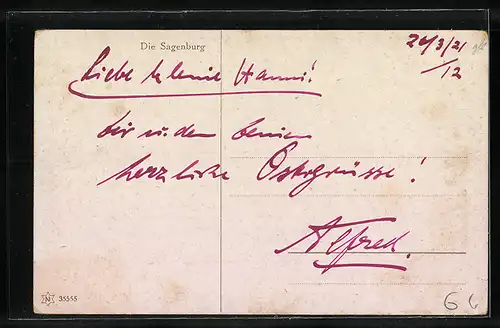 Die Sagenburg
26/3/21
/12
Liebe kleine Hanni!
Dir u. den Deinen
herzliche Ostergrüsse!
Alfred.
N 35555
G 6